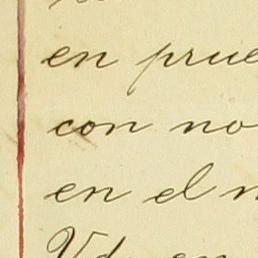 en prue
con no
en el n
Vd. en